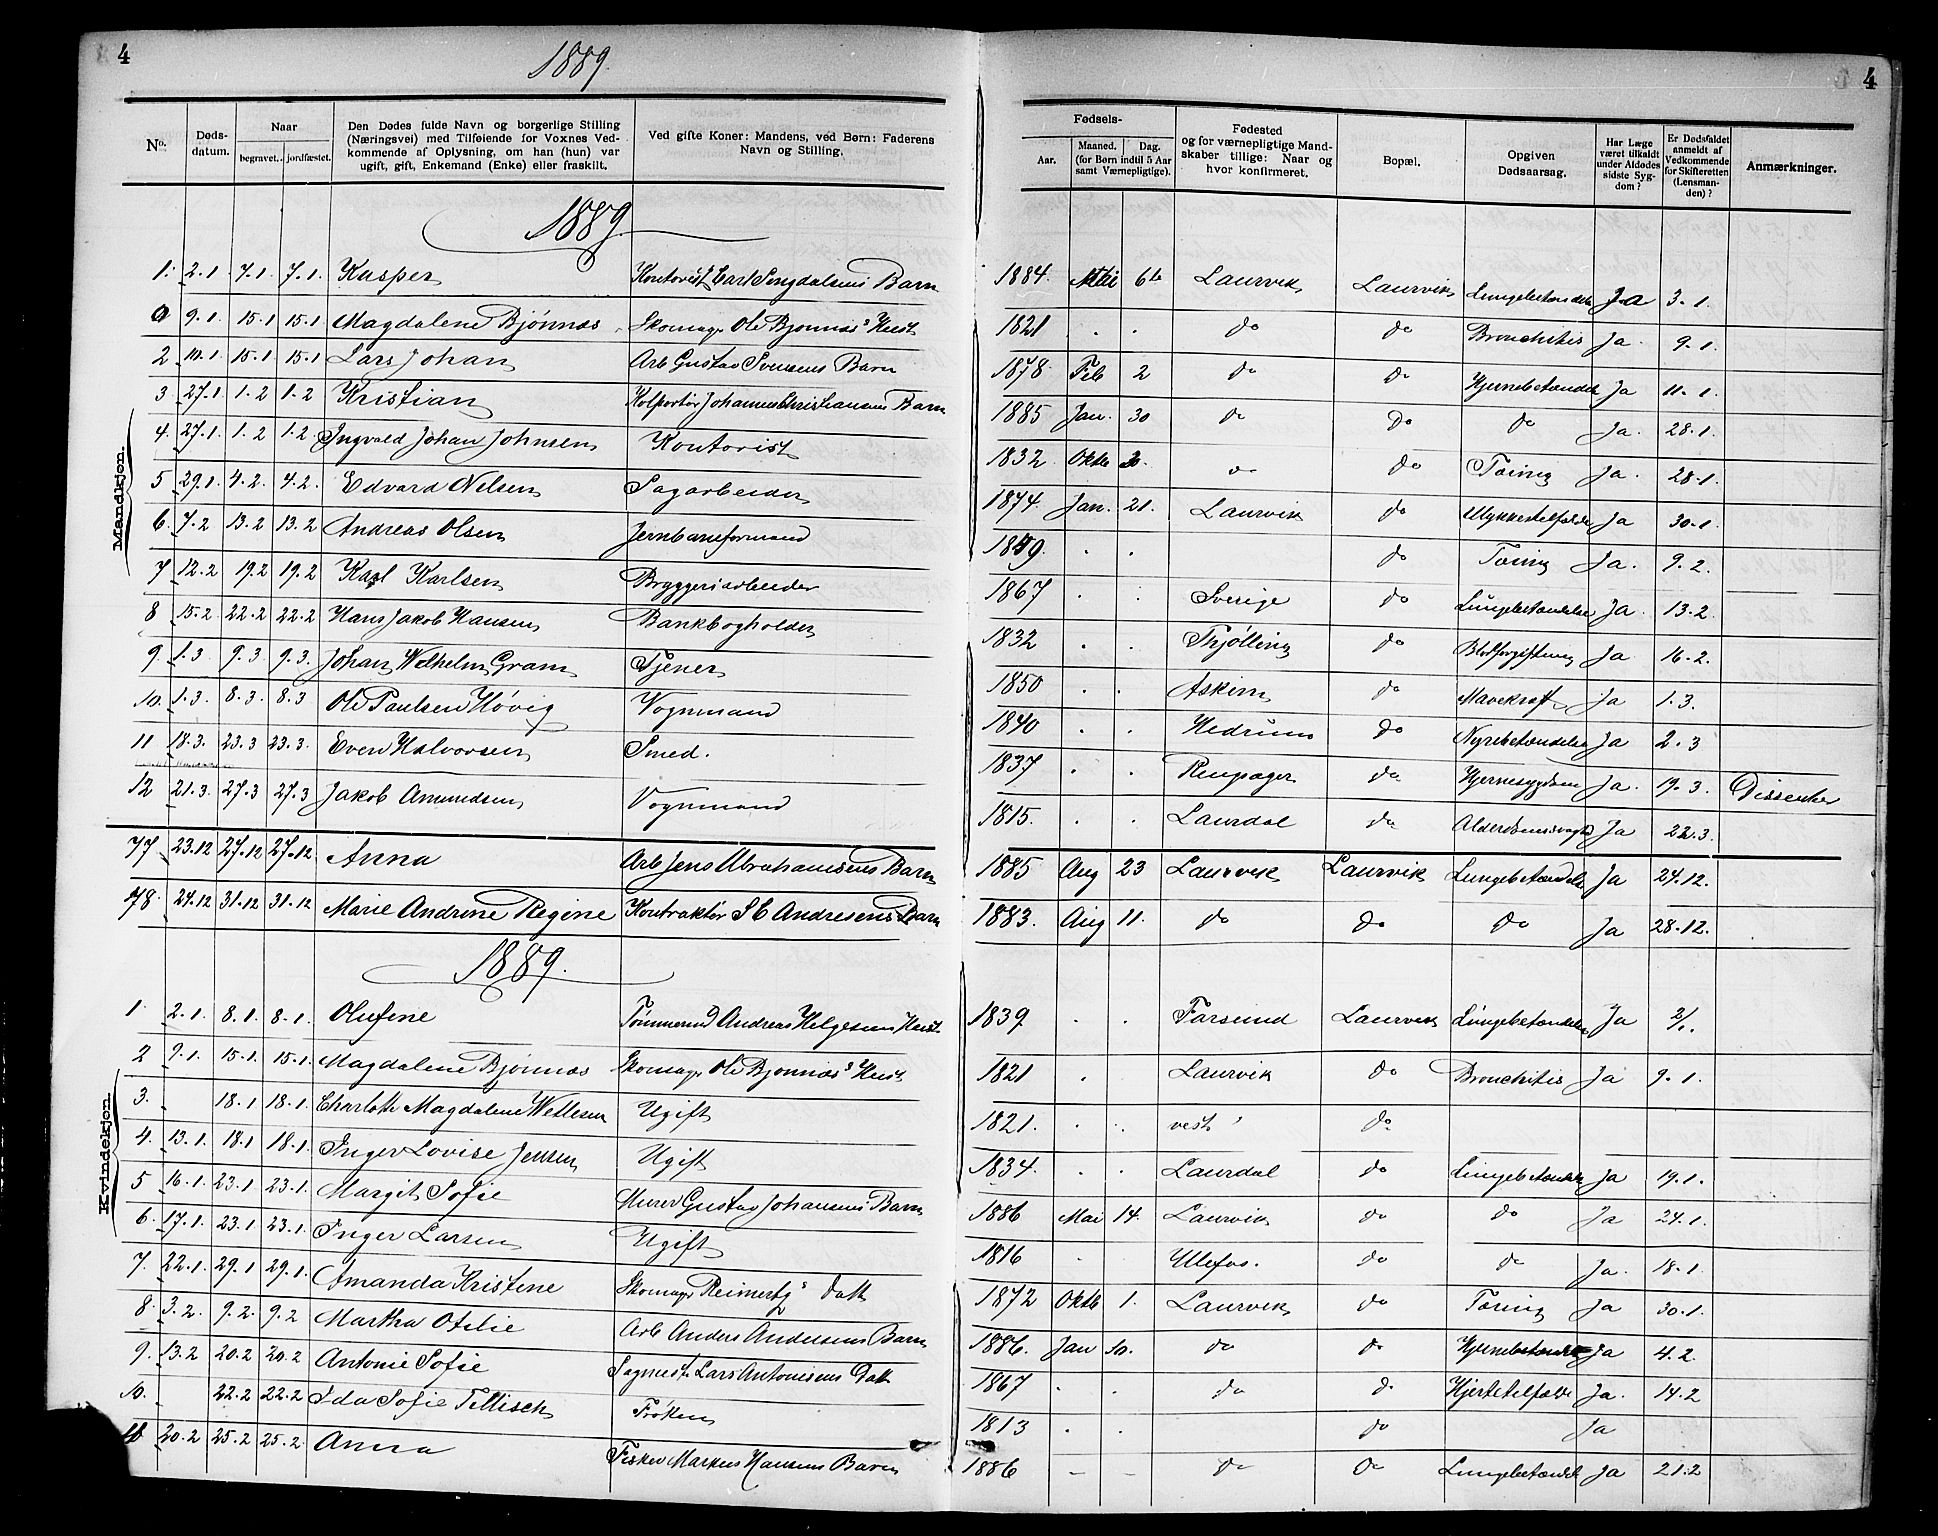 4
1889.
4
No.
Døds-
datum.
Naar
begravet. jordfæstet.
Den Dødes fulde Navn og borgerlige Stilling
(Næringsvei) med Tilføiende for Voxnes Ved-
kommende af Oplysning, om han (hun) var
ugift, gift, Enkemand (Enke) eller fraskilt.
Ved gifte Koner: Mandens, ved Børn: Faderens
Navn og Stilling.
Fødsels-
Aar. Maaned. Dag.
(for Børn indtil 5 Aar
samt Værnepligtige).
Fødested
og for værnepligtige Mand-
skaber tillige: Naar og
hvor konfirmeret.
Bopæl.
Opgiven
Dødsaarsag.
Har Læge
været tilkaldt
under Afdødes
sidste Syg-
dom?
Er Dødsfaldet
anmeldt af
Vedkommende
for Skifteretten
(Lensman-
den)?
Anmærkninger.
1889.
Mandkjøn.
1. 2.1 7.1. 7.1. Kasper Kontorist Carl Barn 1884. Mai 6te Laurvik Laurvik Lungebetændelse Ja 3.1.
0 9.1. 15.1 15.1 Magdalene Bjønnæs Skomagr Ole Bjønnæs's Hust 1821 . . do do Bronchitis Ja. 9.1.
2 10.1 15.1 15.1 Lars Johan Arb Gustav Svensens Barn 1878 Feb 2 do do Hjernebetændelse Ja 11.1.
3 27.1 1.2 1.2 Kristian Kolportør Johannes Christiansens Barn 1885 Jan. 30 do do do Ja. 28.1.
4. 27.1. 1.2 1.2 Ingvald Johan Johnsen Kontorist 1832 Oktb do do Tæring Ja. 28.1.
5 29.1 4.2. 4.2. Edvard Nilsen Sagarbeider 1874. Jan. 21. Laurvik do Ulykkestilfælde Ja 30.1.
6. 7.2 13.2 13.2 Andreas Olsen Jernbaneformand . . do Tæring Ja. 9.2.
7 12.2 19.2 19.2 Karl Karlsen Bryggeriarbeider 1867 . . Sverige do Lungebetændelse Ja. 13.2.
8 15.2 22.2 22.2 Hans Jakob Hansen Bankbogholder 1832 . . Thjølling do Blodforgiftning Ja 16.2.
9 1.3 9.3 9.3. Johan Wilhelm Gram Tjener 1850 . . Askim do Mavekræft Ja 1.3.
10. 1.3. 8.3. 8.3 Ole Paulsen Høvig Vognmand 1840 . . Hedrum do Nyrebetændelse Ja 2.3
11 18.3. 23.3 23.3. Even Halvorsen Smed. 1837 . . do Hjernesygdom Ja. 19.3. Dissenter
12 21.3. 27.3 27.3 Jakob Amundsen Vognmand 1815. . . Laurdal do Alderdomssvaghed Ja 22.3.
77 23.12 27.12 27.12 Anna Arb Jens Abrahamsens Barn 1885 Aug 23 Laurvik Laurvik Lungebetændelse Ja 24.12.
78. 24.12 31.12 31.12 Marie Andrine Regine Kontraktør S C Andresens Barn 1883. Aug 11. do do do Ja 28.12.
1889.
Kvindekjøn.
1. 2.1. 8.1. 8.1. Olufine Tømmermd Andreas Helgesens Hust. 1839 . . Farsund Laurvik Lungebetændelse Ja 2/1.
2 9.1. 15.1. 15.1. Magdalene Bjønnæs Skomagr Ole Bjønnæs's Hust 1821 . Laurvik do Bronchitis Ja 9.1.
3. 18.1 18.1. Charlotte Magdalene Willesen Ugift 1821. . . vest do
4. 13.1. 18.1 18.1 Inger Lovise Jensen Ugift 1834. . . Laurdal do Lungebetændelse Ja 19.1.
5 16.1. 23.1 23.1. Margit Sofie Murer Gustav Johansens Barn 1886 Mai 14. Laurvik do do Ja 24.1.
6. 17.1. 23.1 23.1. Inger Larsen Ugift 1816 . Ulefos. do do Ja. 18.1.
7. 22.1. 29.1 29.1. Amanda Kristine Skomagr Datt 1872 Oktb 1. Laurvik do Tæring Ja 30.1.
8. 3.2. 9.2. 9.2 Martha Otilie Arb Anders Andersens Barn 1886. Jan 10. do do Hjernebetændelse Ja 4.2.
9. 13.2 20.2 20.2 Antonie Sofie Sagmest. Lars Antonisens Datt 1867 . . do do Hjertetilfælde Ja. 14.2
10. 22.2 22.2 Ida Sofie Tellisch Frøken 1813 . . do Ja
11 20.2 25.2 25.2 Anna Fisker Markus Hansens Barn 1886 – – do do Lungebetændelse Ja 21.2